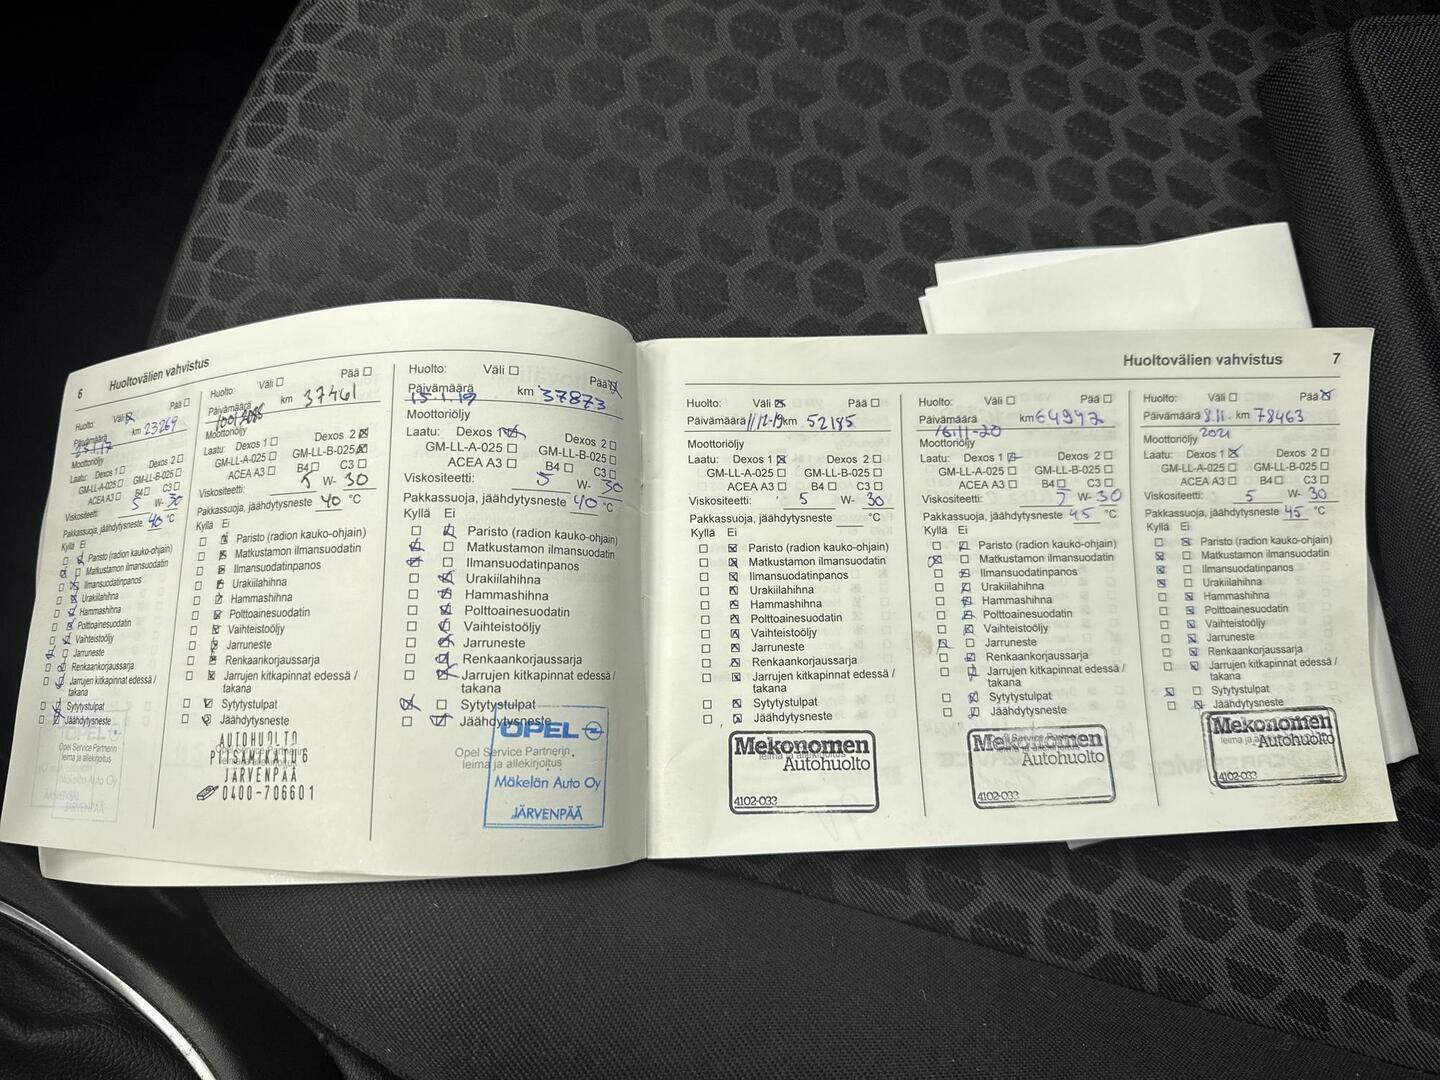 6 Huoltovälien vahvistus
Huolto: Väli ☒ Pää ☐
Päivämäärä km 23269
Moottoriöljy
Laatu: Dexos 1 ☐ Dexos 2 ☐
GM-LL-A-025 ☐ GM-LL-B-025 ☐
ACEA A3 ☐ B4 ☐ C3 ☐
Viskositeetti: 5 W- 30
Pakkassuoja, jäähdytysneste 40 °C
Kyllä Ei
Paristo (radion kauko-ohjain)
Matkustamon ilmansuodatin
Ilmansuodatinpanos
Urakiilahihna
Hammashihna
Polttoainesuodatin
Vaihteistoöljy
Jarruneste
Renkaankorjaussarja
Jarrujen kitkapinnat edessä /
takana
Sytytystulpat
Jäähdytysneste
OPEL
Opel Service Partnerin
leima ja allekirjoitus
Mäkelän Auto Oy
JÄRVENPÄÄ
Huolto: Väli ☐ Pää ☐
Päivämäärä km 37461
Moottoriöljy
Laatu: Dexos 1 ☐ Dexos 2 ☒
GM-LL-A-025 ☐ GM-LL-B-025 ☒
ACEA A3 ☐ B4 ☐ C3 ☐
Viskositeetti: 5 W- 30
Pakkassuoja, jäähdytysneste 40 °C
Kyllä Ei
Paristo (radion kauko-ohjain)
Matkustamon ilmansuodatin
Ilmansuodatinpanos
Urakiilahihna
Hammashihna
Polttoainesuodatin
Vaihteistoöljy
Jarruneste
Renkaankorjaussarja
Jarrujen kitkapinnat edessä /
takana
Sytytystulpat
Jäähdytysneste
AUTOHUOLTO
JÄRVENPÄÄ
0400-706601
Huolto: Väli ☐ Pää ☒
Päivämäärä 15.1.19 km 37873
Moottoriöljy
Laatu: Dexos 1 ☒ Dexos 2 ☐
GM-LL-A-025 ☐ GM-LL-B-025 ☐
ACEA A3 ☐ B4 ☐ C3 ☐
Viskositeetti: 5 W- 30
Pakkassuoja, jäähdytysneste 40 °C
Kyllä Ei
Paristo (radion kauko-ohjain)
Matkustamon ilmansuodatin
Ilmansuodatinpanos
Urakiilahihna
Hammashihna
Polttoainesuodatin
Vaihteistoöljy
Jarruneste
Renkaankorjaussarja
Jarrujen kitkapinnat edessä /
takana
Sytytystulpat
Jäähdytysneste
OPEL
Opel Service Partnerin
leima ja allekirjoitus
Mäkelän Auto Oy
JÄRVENPÄÄ
Huoltovälien vahvistus 7
Huolto: Väli ☒ Pää ☐
Päivämäärä 11/12-19 km 52185
Moottoriöljy
Laatu: Dexos 1 ☒ Dexos 2 ☐
GM-LL-A-025 ☐ GM-LL-B-025 ☐
ACEA A3 ☐ B4 ☐ C3 ☐
Viskositeetti: 5 W- 30
Pakkassuoja, jäähdytysneste °C
Kyllä Ei
Paristo (radion kauko-ohjain)
Matkustamon ilmansuodatin
Ilmansuodatinpanos
Urakiilahihna
Hammashihna
Polttoainesuodatin
Vaihteistoöljy
Jarruneste
Renkaankorjaussarja
Jarrujen kitkapinnat edessä /
takana
Sytytystulpat
Jäähdytysneste
Mekonomen
Autohuolto
4102-033
Huolto: Väli ☐ Pää ☐
Päivämäärä km 64992
16.11-20
Moottoriöljy
Laatu: Dexos 1 ☒ Dexos 2 ☐
GM-LL-A-025 ☐ GM-LL-B-025 ☐
ACEA A3 ☐ B4 ☐ C3 ☐
Viskositeetti: 5 W- 30
Pakkassuoja, jäähdytysneste 45 °C
Kyllä Ei
Paristo (radion kauko-ohjain)
Matkustamon ilmansuodatin
Ilmansuodatinpanos
Urakiilahihna
Hammashihna
Polttoainesuodatin
Vaihteistoöljy
Jarruneste
Renkaankorjaussarja
Jarrujen kitkapinnat edessä /
takana
Sytytystulpat
Jäähdytysneste
Mekonomen
Autohuolto
4102-033
Huolto: Väli ☐ Pää ☒
Päivämäärä 8.11. km 78463
2021
Moottoriöljy
Laatu: Dexos 1 ☒ Dexos 2 ☐
GM-LL-A-025 ☐ GM-LL-B-025 ☐
ACEA A3 ☐ B4 ☐ C3 ☐
Viskositeetti: 5 W- 30
Pakkassuoja, jäähdytysneste 45 °C
Kyllä Ei
Paristo (radion kauko-ohjain)
Matkustamon ilmansuodatin
Ilmansuodatinpanos
Urakiilahihna
Hammashihna
Polttoainesuodatin
Vaihteistoöljy
Jarruneste
Renkaankorjaussarja
Jarrujen kitkapinnat edessä /
takana
Sytytystulpat
Jäähdytysneste
Mekonomen
Autohuolto
4102-033